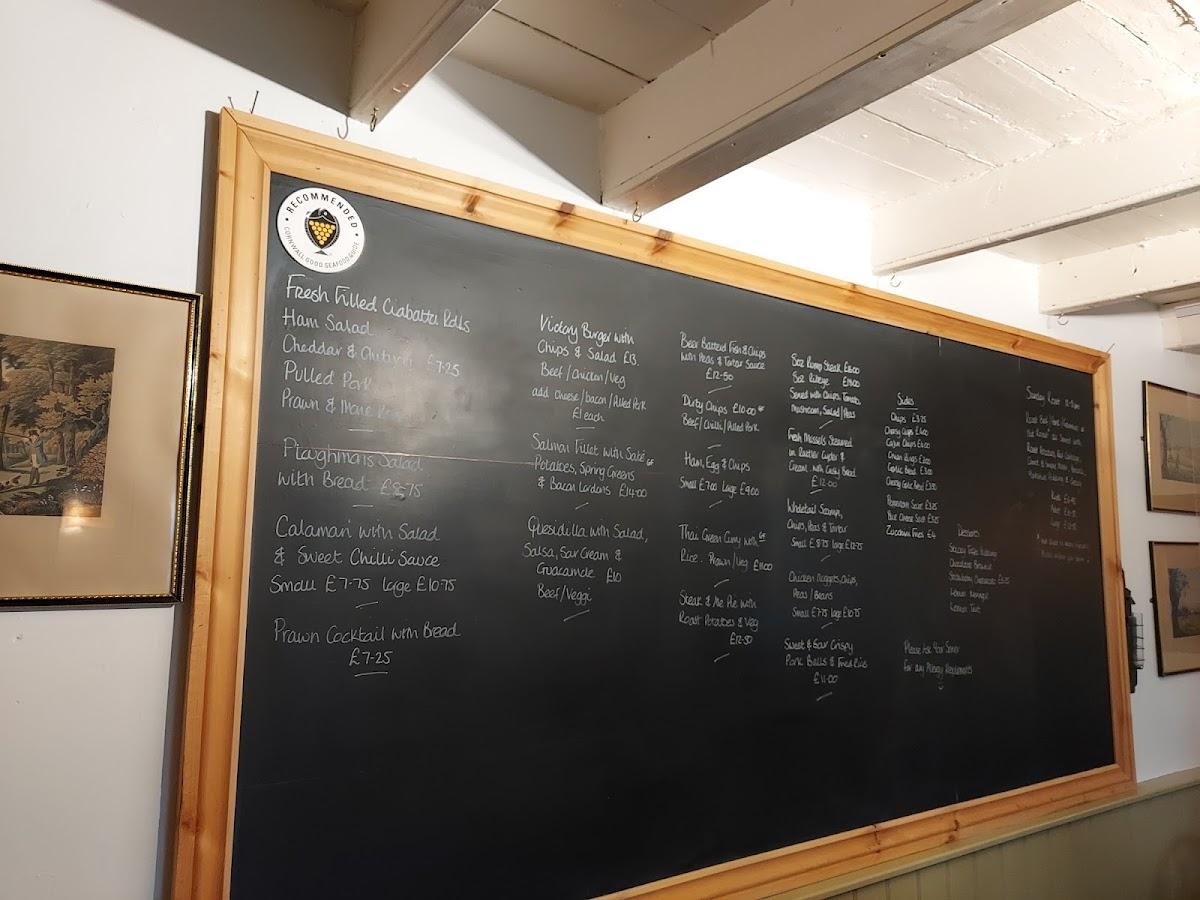 RECOMMENDED
CORNWALL GOOD SEAFOOD GUIDE
Fresh Filled Ciabatta Rolls
Ham Salad
Cheddar & Chutney £7.25
Pulled Pork
Prawn & Marie
Ploughmans Salad
with Bread £9.75
Calamari with Salad
& Sweet Chilli Sauce
Small £7.75 large £10.75
Prawn Cocktail with Bread
£7.25
Victory Burger with
Chips & Salad £13.
Beef/Chicken/Veg
add cheese/bacon/Pulled Pork
£1 each
Salmon Fillet with Saté GF
Potatoes, Spring Greens
& Bacon Lardons £14.00
Quesidilla with Salad,
Salsa, Sour Cream &
Guacamole £10
Beef/Veggi
Beer Battered Fish & Chips
with Peas & Tartar Sauce
£12.50
Dirty Chips £10.00 GF
Beef/Chilli/Pulled Pork
Ham, Egg & Chips
Small £7.00 Large £9.00
Thai Green Curry with GF
Rice. Prawn/Veg £11.00
Steak & Ale Pie with
Roast Potatoes & Veg
£12.50
8oz Rump Steak £16.00
8oz Ribeye
Served with Chips, Tomato,
Mushroom, Salad/Peas
Fresh Mussels Steamed
in Rattler Cyder &
Cream with Crusty Bread
£12.00
Wholetail Scampi,
Chips, Peas & Tartar
Small £8.75 large £12.75
Chicken Nuggets, Chips,
Peas/Beans
Small £7.75 large £10.75
Sweet & Sour Crispy
Pork Balls & Fried Rice
£11.00
Sides
Chips £3.25
Cheesy Chips £4.00
Cajun Chips
Onion Rings
Garlic Bread
Cheesy Garlic Bread
Zucchini Fries £4
Please Ask Your Server
for any Allergy Requirements
Desserts
Chocolate Brownie
Strawberry Cheesecake
Lemon Meringue
Lemon Tart
Sunday Roast